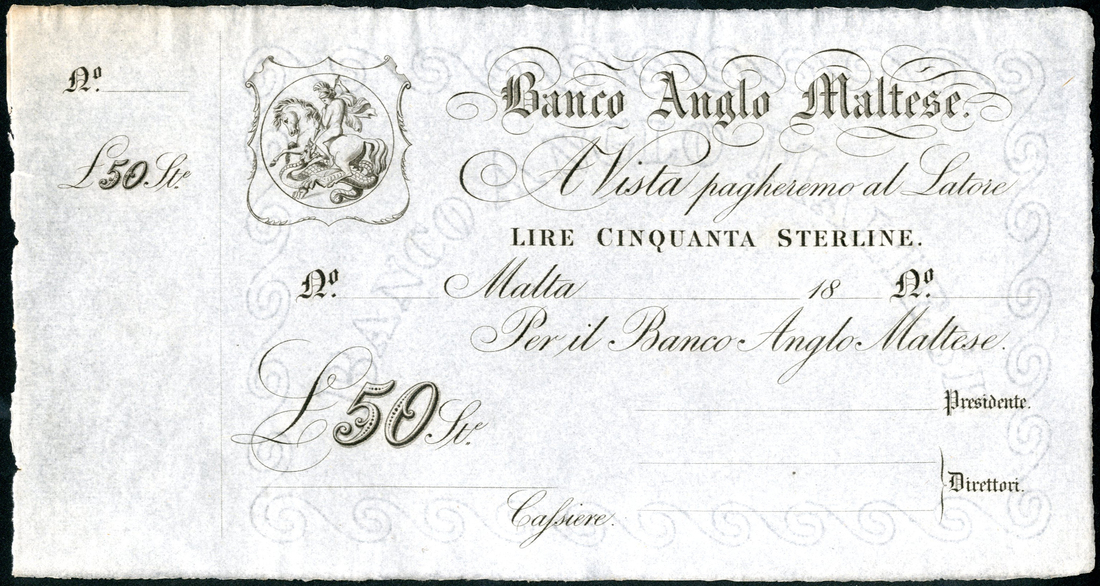 Nº.
£50 Stᵉ.
Banco Anglo Maltese.
A Vista pagheremo al Latore
LIRE CINQUANTA STERLINE.
Nº. Malta 18 Nº.
Per il Banco Anglo Maltese.
£50 Stᵉ.
Presidente.
Direttori.
Caſsiere.
BANCO ANGLO MALTESE